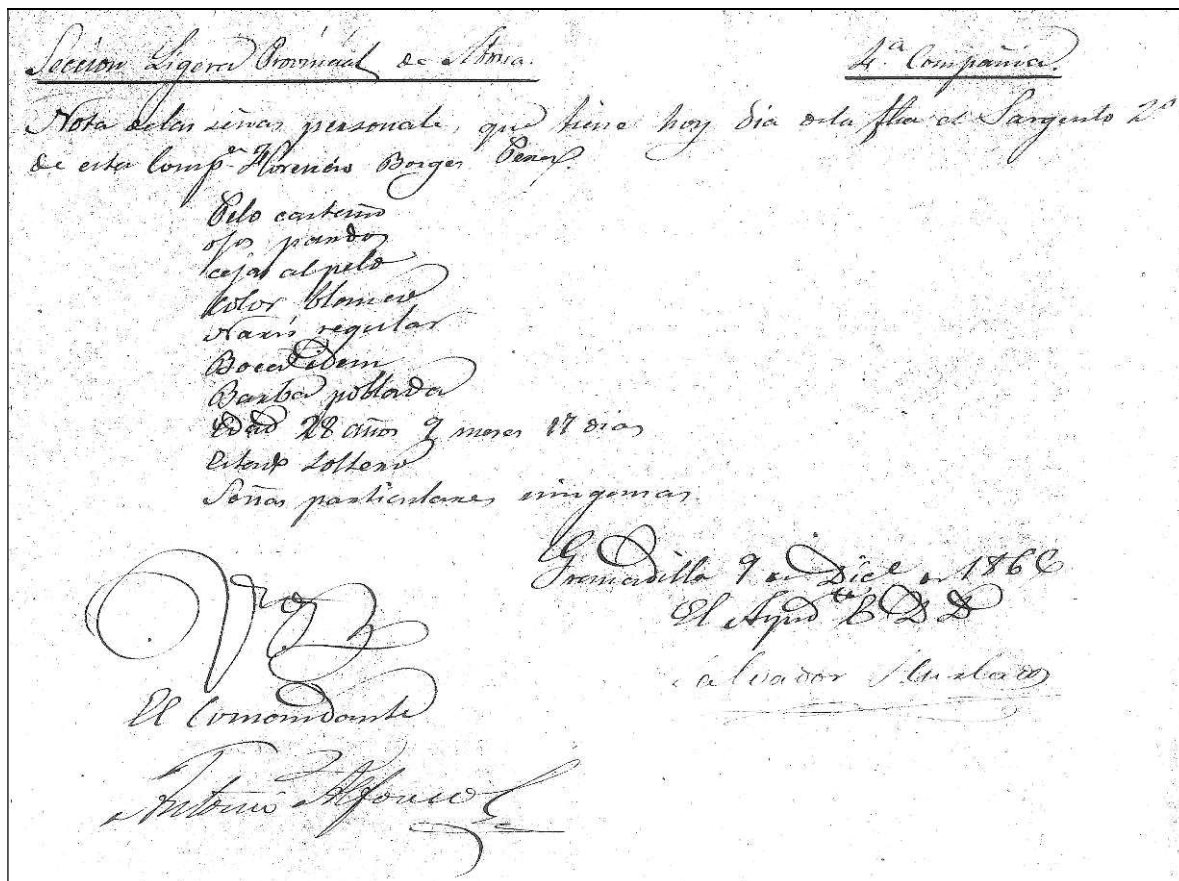 Sección Ligera Provincial de Abona. 4.ª Compañía.
Nota de las señas personale, que tiene hoy dia de la fha el Sargento 2º
de esta Compª Florencio Borges Perez
Pelo castaño
ojos pardos
ceja al pelo
Color blanco
Naris regular
Boca idem
Barba poblada
Edad 28 años 9 meses 17 dias
Estado Soltero
Señas particulares ningunas
Granadilla 9 de Dice de 1866
El Aydte
Vº Bº
Salvador
El Comandante
Antonio Alfonso